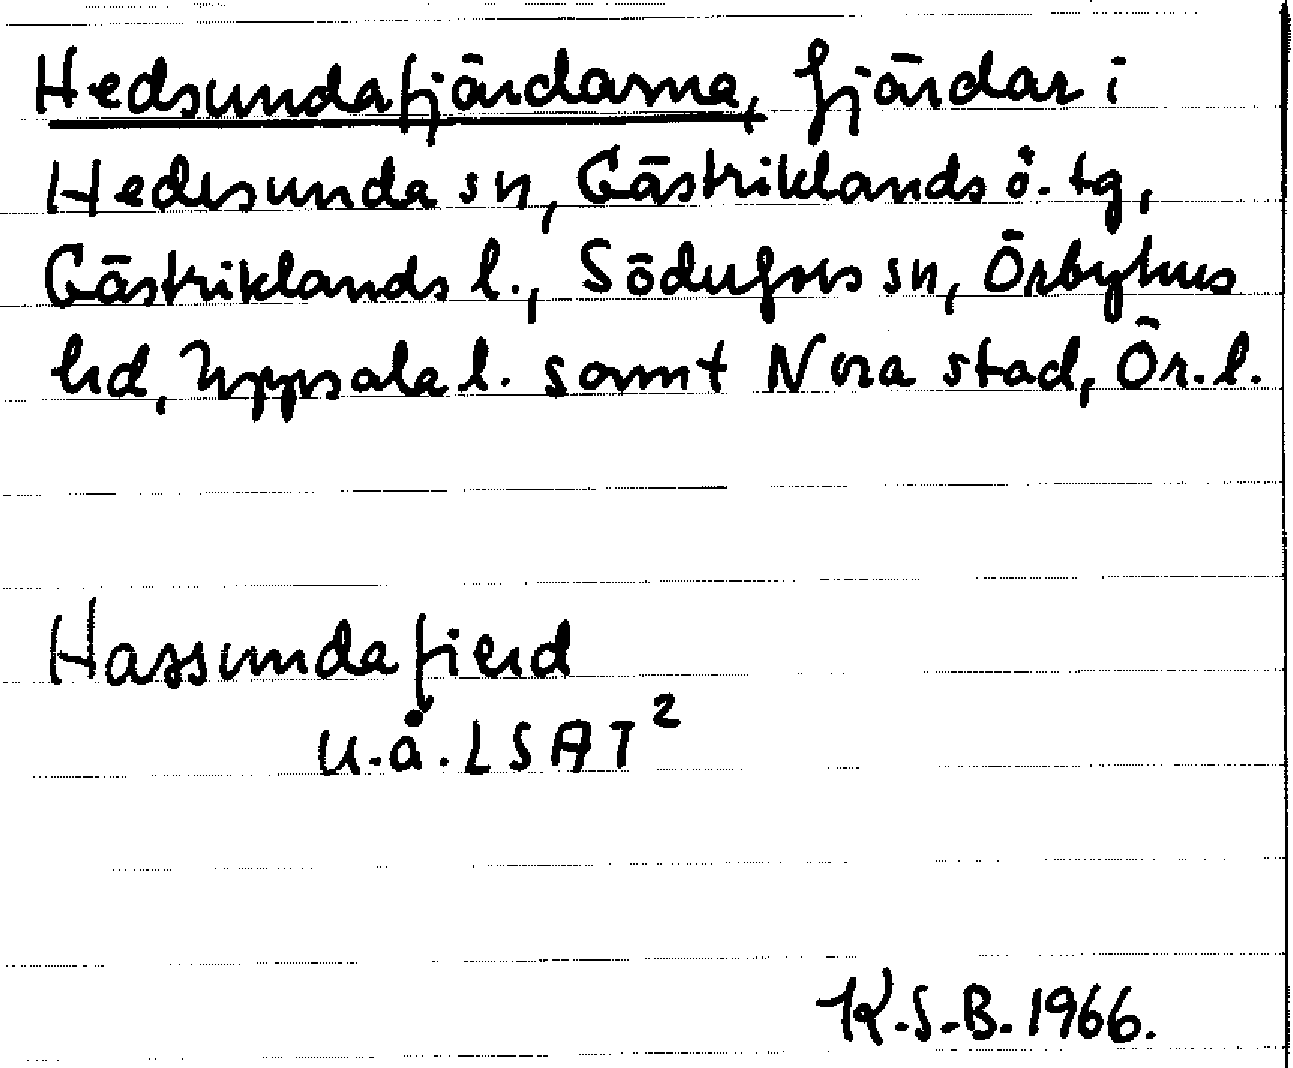 Hedsundafjärdarna, fjärdar i
Hedesunda sn, Gästriklands ö. tg,
Gästriklands l., Söderfors sn, Örbyhus
hd, Uppsala l. samt Nora stad, Ör. l.
Hassundafierd
u.å. LSAT²
K.S.B. 1966.